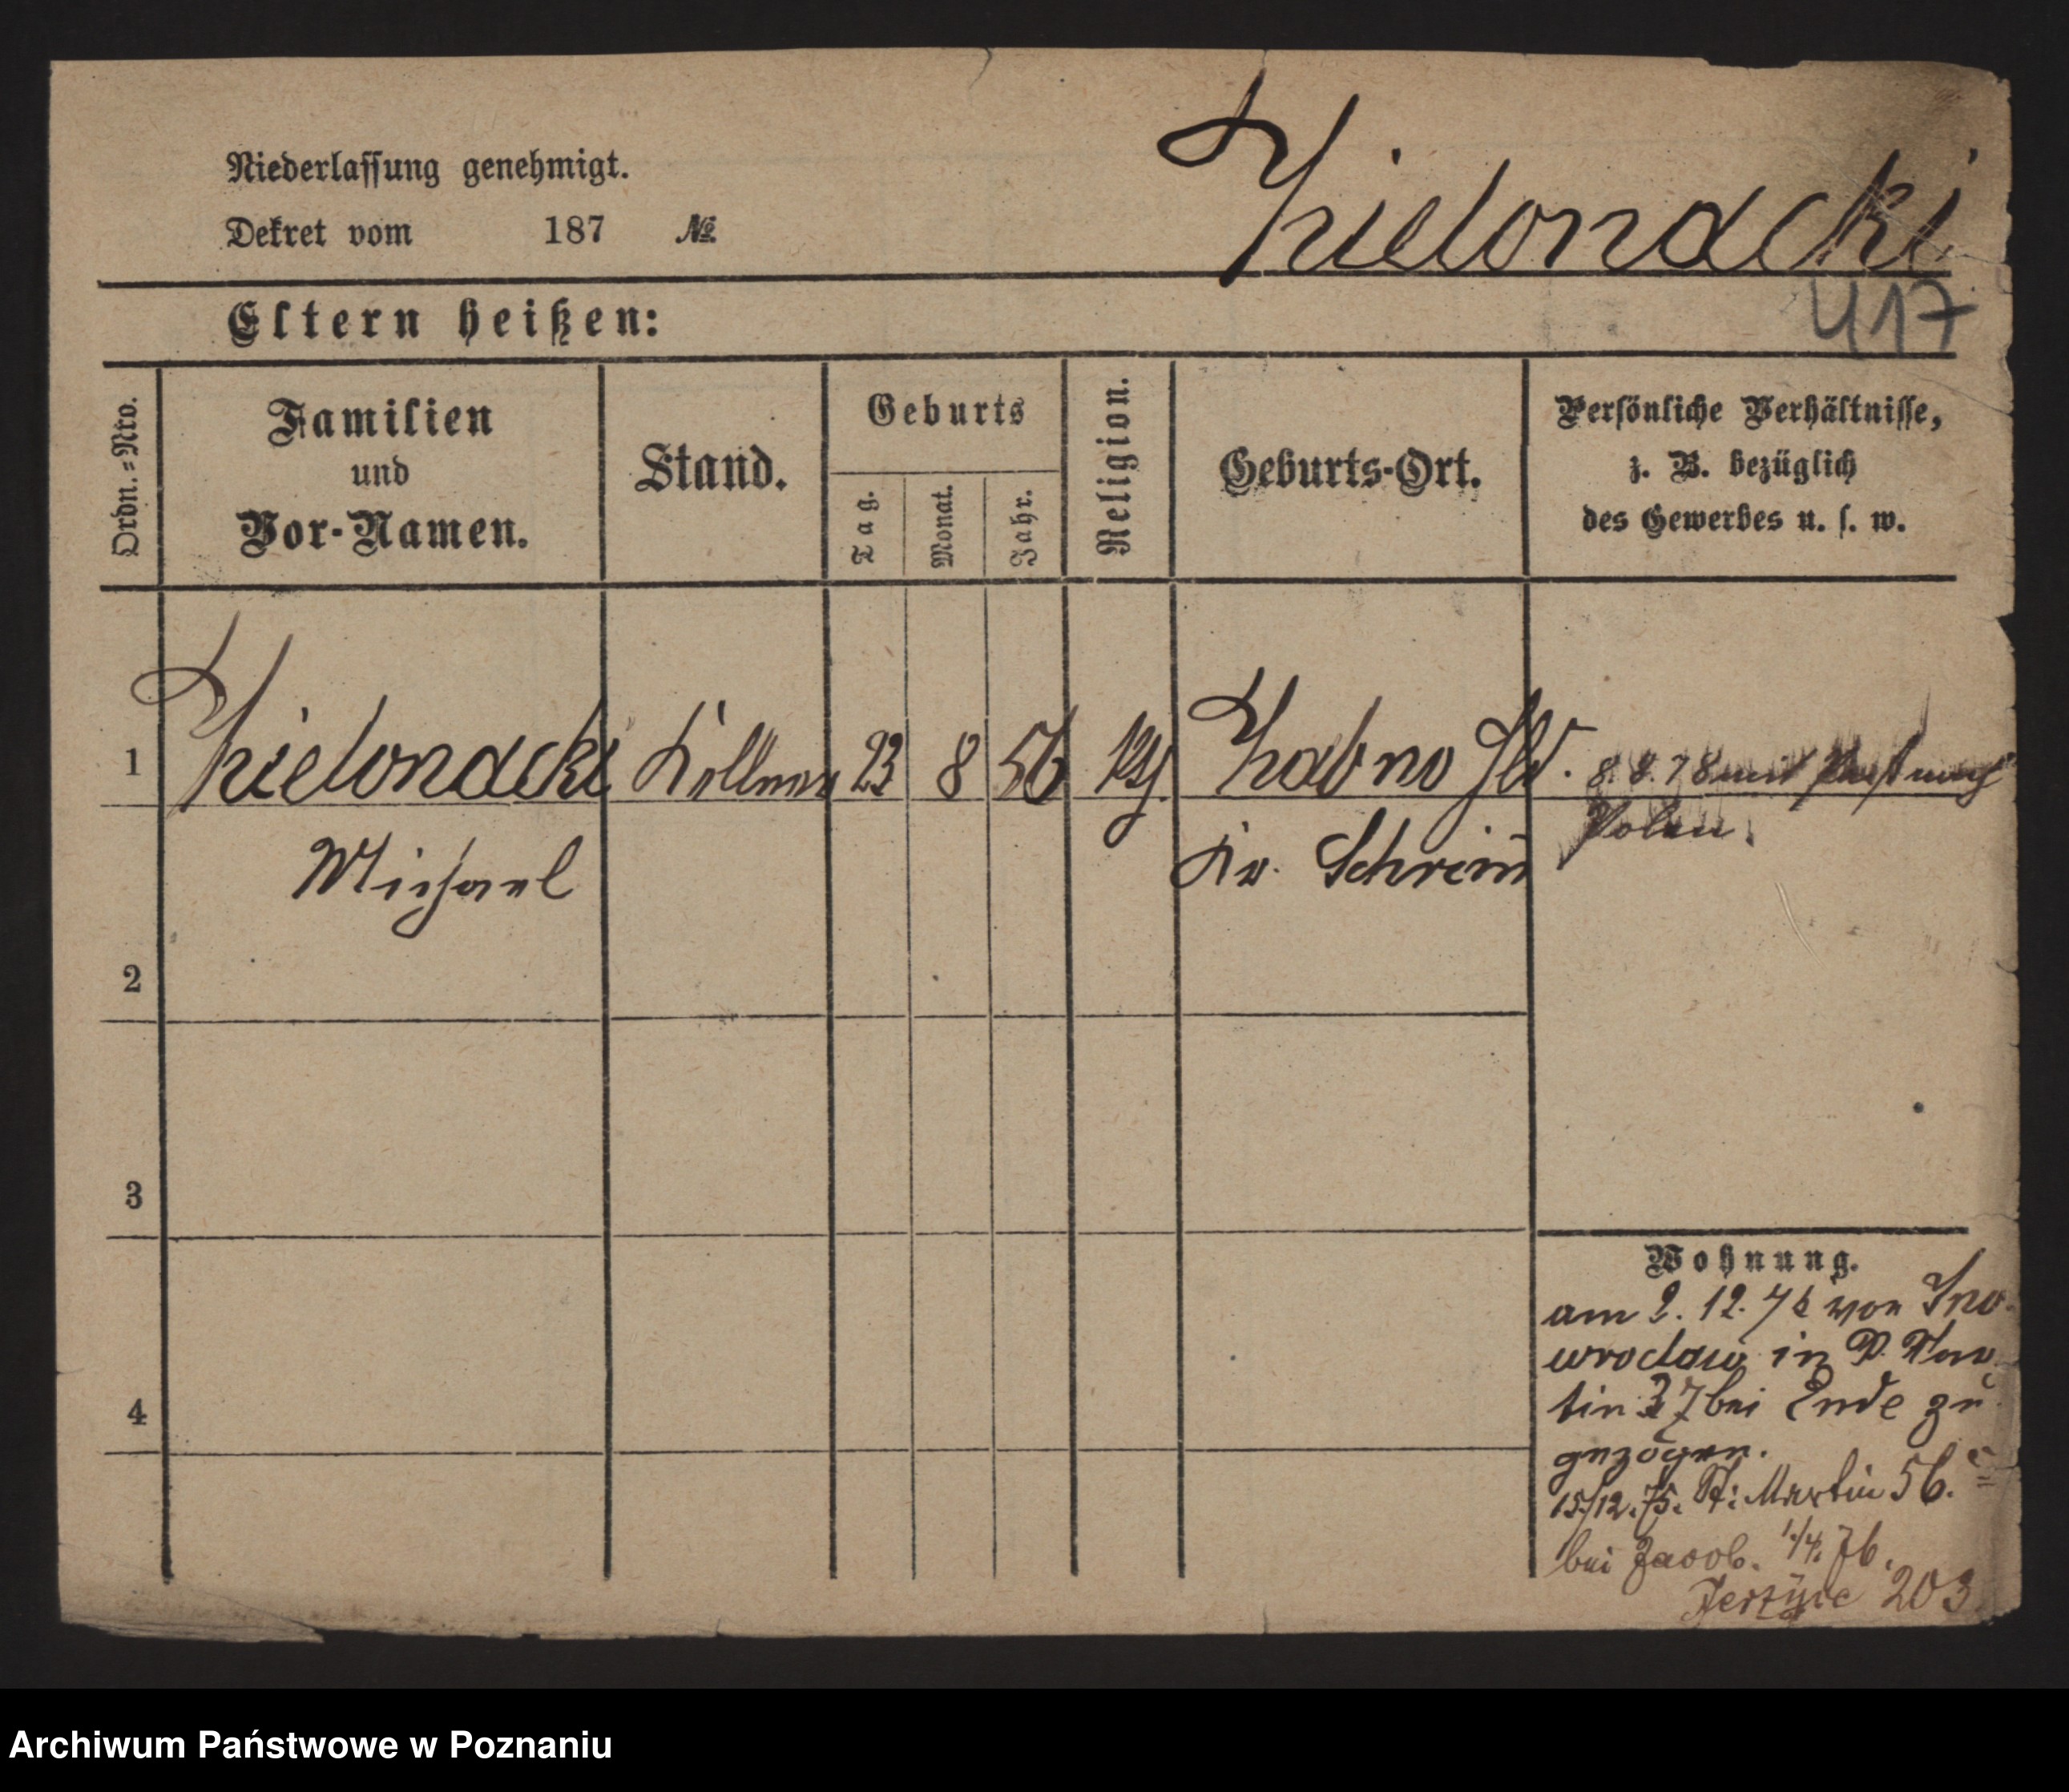 Niederlassung genehmigt.
Dekret vom 187 №
Zielonacki
417
Eltern heißen:
Ordn.=Nro.
Familien
und
Vor-Namen.
Stand.
Geburts
Tag.
Monat.
Jahr.
Religion.
Geburts-Ort.
Persönliche Verhältnisse,
z. B. bezüglich
des Gewerbes u. s. w.
1 Zielonacki Kellner 23 8 56 Zabno 8. 8. 78 mit nach
Michael Kr. Schrim Polen.
2
3
4
Wohnung.
am 2. 12. 76 von Ino
wroclaw in P. Mar
tin 37 bei Ende zu
gezogen.
15/12. 75. St: Martin 56.
bei Jacob. 1./4. 76.
Jerzyce 203
Archiwum Państwowe w Poznaniu